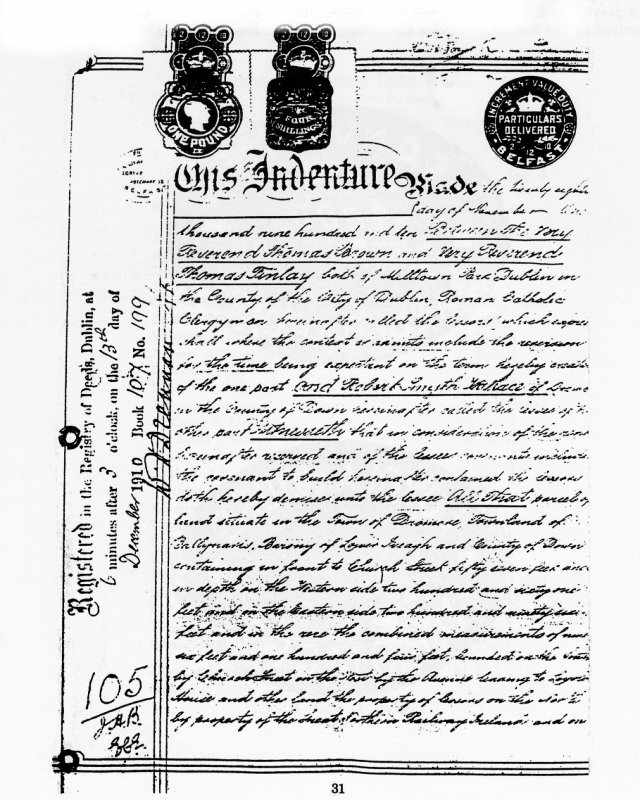 ONE POUND
FOUR SHILLINGS
INCREMENT VALUE DUTY
PARTICULARS
DELIVERED
2 12 10
BELFAST
This Indenture Made the twenty eighth
day of November One
thousand nine hundred and ten Between The Very
Reverend Thomas Brown and Very Reverend
Thomas Finlay both of Milltown Park Dublin in
the County of the City of Dublin, Roman Catholic
Clergymen hereinafter called the lessors which
shall where the context so admits include the reversion
for the time being expectant on the term hereby
of the one part and Robert Smyth Wallace of
in the County of Down hereinafter called the lessee of
other part Witnesseth that in consideration of the
hereinafter reserved and of the lessee
the covenant to build hereinafter contained the lessors
doth hereby demise unto the lessee All That parcel of
land situate in the Town of Dromore, Townland of
Barony of Lower Iveagh and County of Down
containing in front to Church Street fifty seven feet
in depth on the Western side two hundred and sixty one
feet and on the Eastern side two hundred and ninety
feet and in the rere the combined measurements of
six feet and one hundred and four feet, bounded on the
by Church Street on the by the Avenue leading to
House and other land the property of lessors on the
by property of the Great Northern Railway Ireland and on
Registered in the Registry of Deeds, Dublin, at
6 minutes after 3 o'clock, on the 13th day of
December 1910 Book 107 No. 199
105
J.A.B.
31